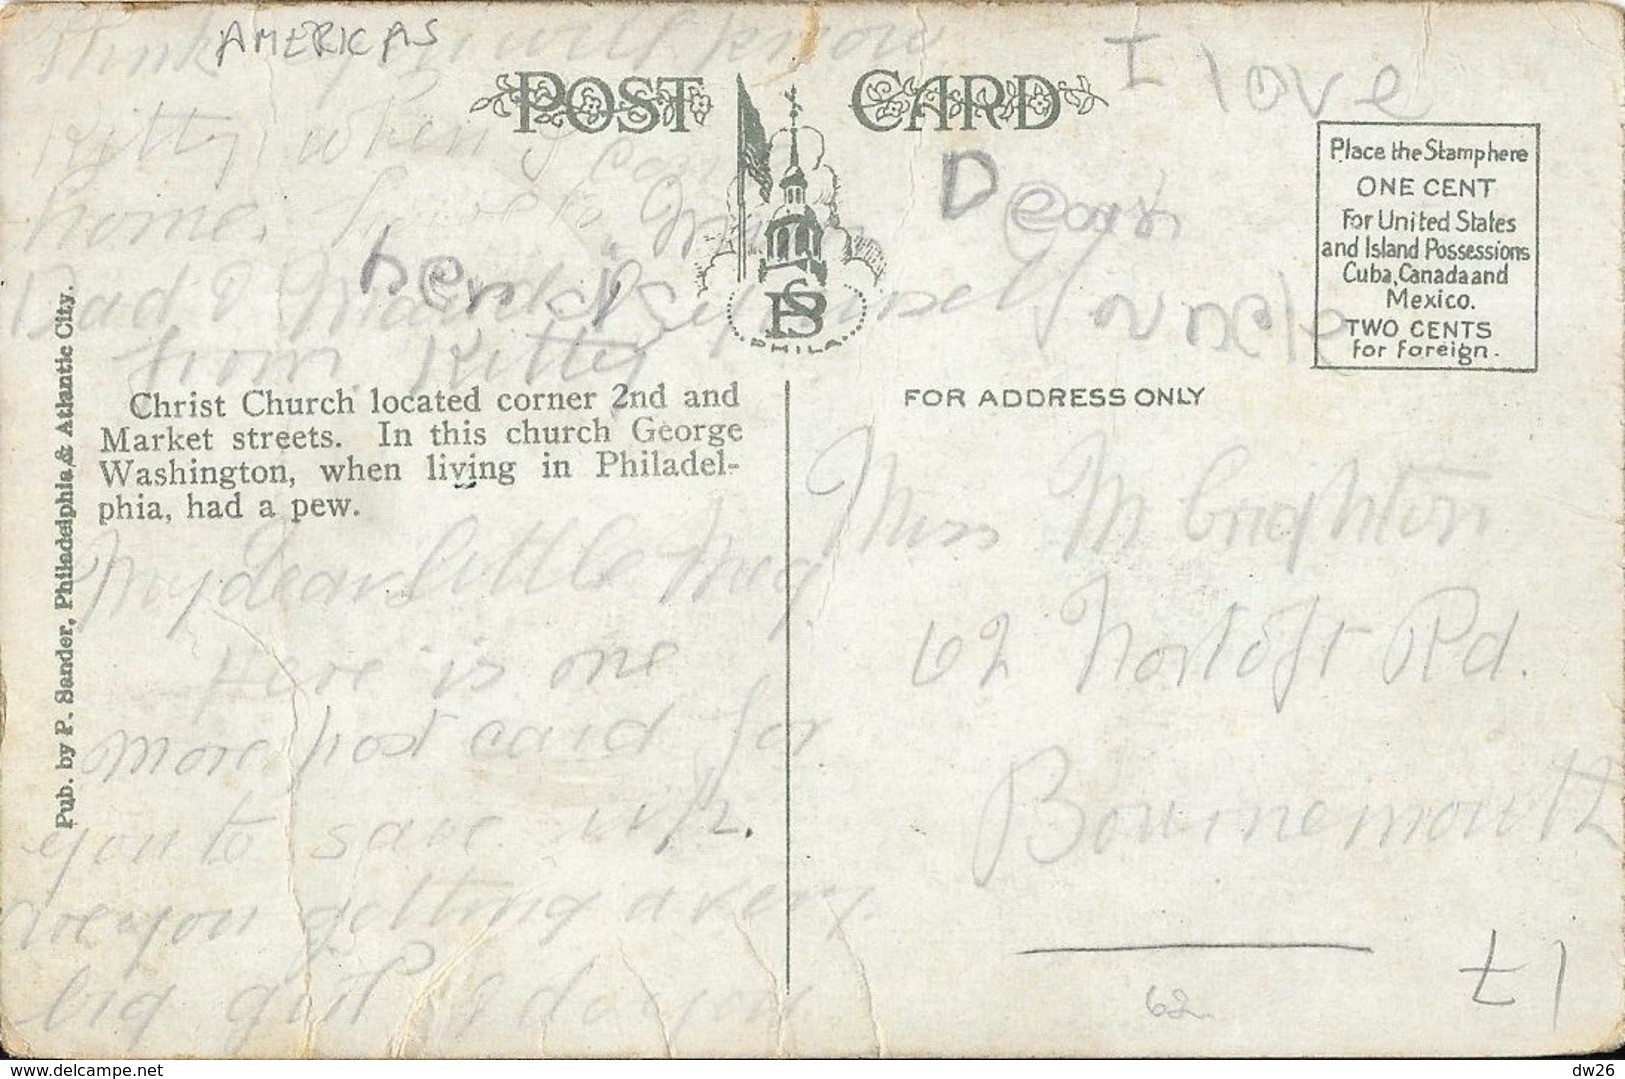 AMERICAS
think you will know
Kitty when I come
home, love to
Dad &
from Kitty
I love
Dear
henry
uncle
POST CARD
PBS
PHILA
Place the Stamp here
ONE CENT
For United States
and Island Possessions
Cuba, Canada and
Mexico.
TWO CENTS
for foreign.
FOR ADDRESS ONLY
Christ Church located corner 2nd and
Market streets. In this church George
Washington, when living in Philadel-
phia, had a pew.
Pub. by P. Sander, Philadelphia & Atlantic City.
My dear little Meg
Here is one
more post card for
you to save up.
are you getting a very
big girl & do you
Miss M Crighton
62 Nortoft Rd.
Bournemouth
62
£1
delcampe.net
dw26